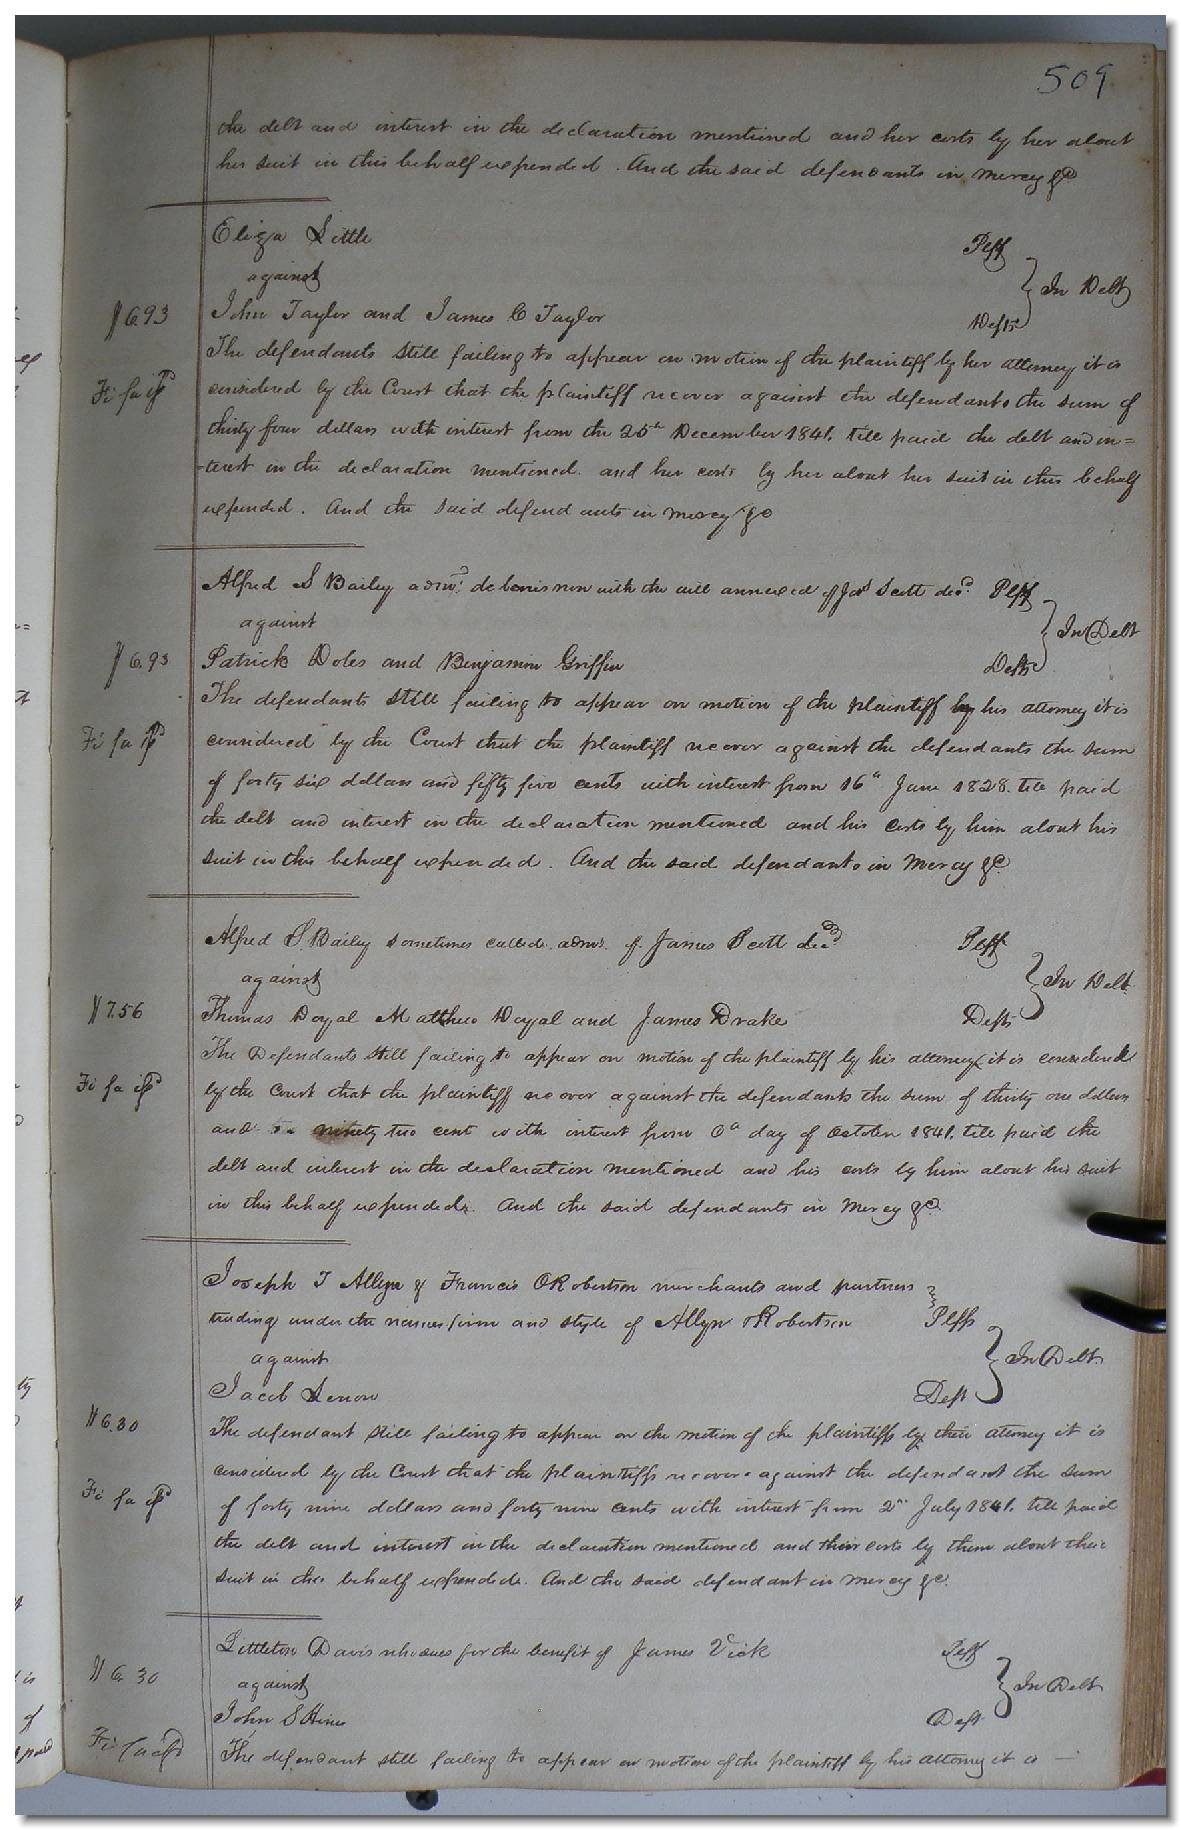 509
the debt and interest in the declaration mentioned and her costs by her about
her suit in this behalf expended. And the said defendants in mercy &c
Eliza Little Plff
against } In Debt
$6.93 John Taylor and James C Taylor Defts
The defendants still failing to appear on motion of the plaintiff by her attorney it is
Fi fa issd considered by the Court that the plaintiff recover against the defendants the sum of
thirty four dollars with interest from the 25th December 1841. till paid the debt and in=
-terest in the declaration mentioned and her costs by her about her suit in this behalf
expended. And the said defendants in mercy &c
Alfred S Bailey admr. de bonis non with the will annexed of Jas Scott decd. Plff
against } In Debt
$6.93 Patrick Doles and Benjamin Griffin Defts
The defendants still failing to appear on motion of the plaintiff by his attorney it is
Fi fa issd considered by the Court that the plaintiff recover against the defendants the sum
of forty six dollars and fifty five cents with interest from 16th June 1828. till paid
the debt and interest in the declaration mentioned and his costs by him about his
suit in this behalf expended. And the said defendants in mercy &c.
Alfred S. Bailey sometimes called admr. of James Scott decd Plff
against } In Debt
$7.56 Thomas Doyal Matthew Doyal and James Drake Defts
The Defendants still failing to appear on motion of the plaintiff by his attorney it is considered
Fi fa issd by the Court that the plaintiff recover against the defendants the sum of thirty one dollars
and ninety two cent with interest from day of October 1841. till paid the
debt and interest in the declaration mentioned and his costs by him about his suit
in this behalf expended. And the said defendants in mercy &c.
Joseph T Allyn & Francis O Robertson merchants and partners
trading under the name firm and style of Allyn & Robertson } Plffs
against } In Debt
Jacob Lenow Deft
$6.30 The defendant still failing to appear on the motion of the plaintiffs by their attorney it is
considered by the Court that the plaintiffs recover against the defendant the sum
Fi fa issd of forty nine dollars and forty nine cents with interest from 2nd July 1841. till paid
the debt and interest in the declaration mentioned and their costs by them about their
suit in this behalf expended. And the said defendant in mercy &c.
Littleton Davis who sues for the benefit of James Vick Plff
$6.30 against } In Debt
John S Hines Deft
Fi fa issd The defendant still failing to appear on motion of the plaintiff by his attorney it is —